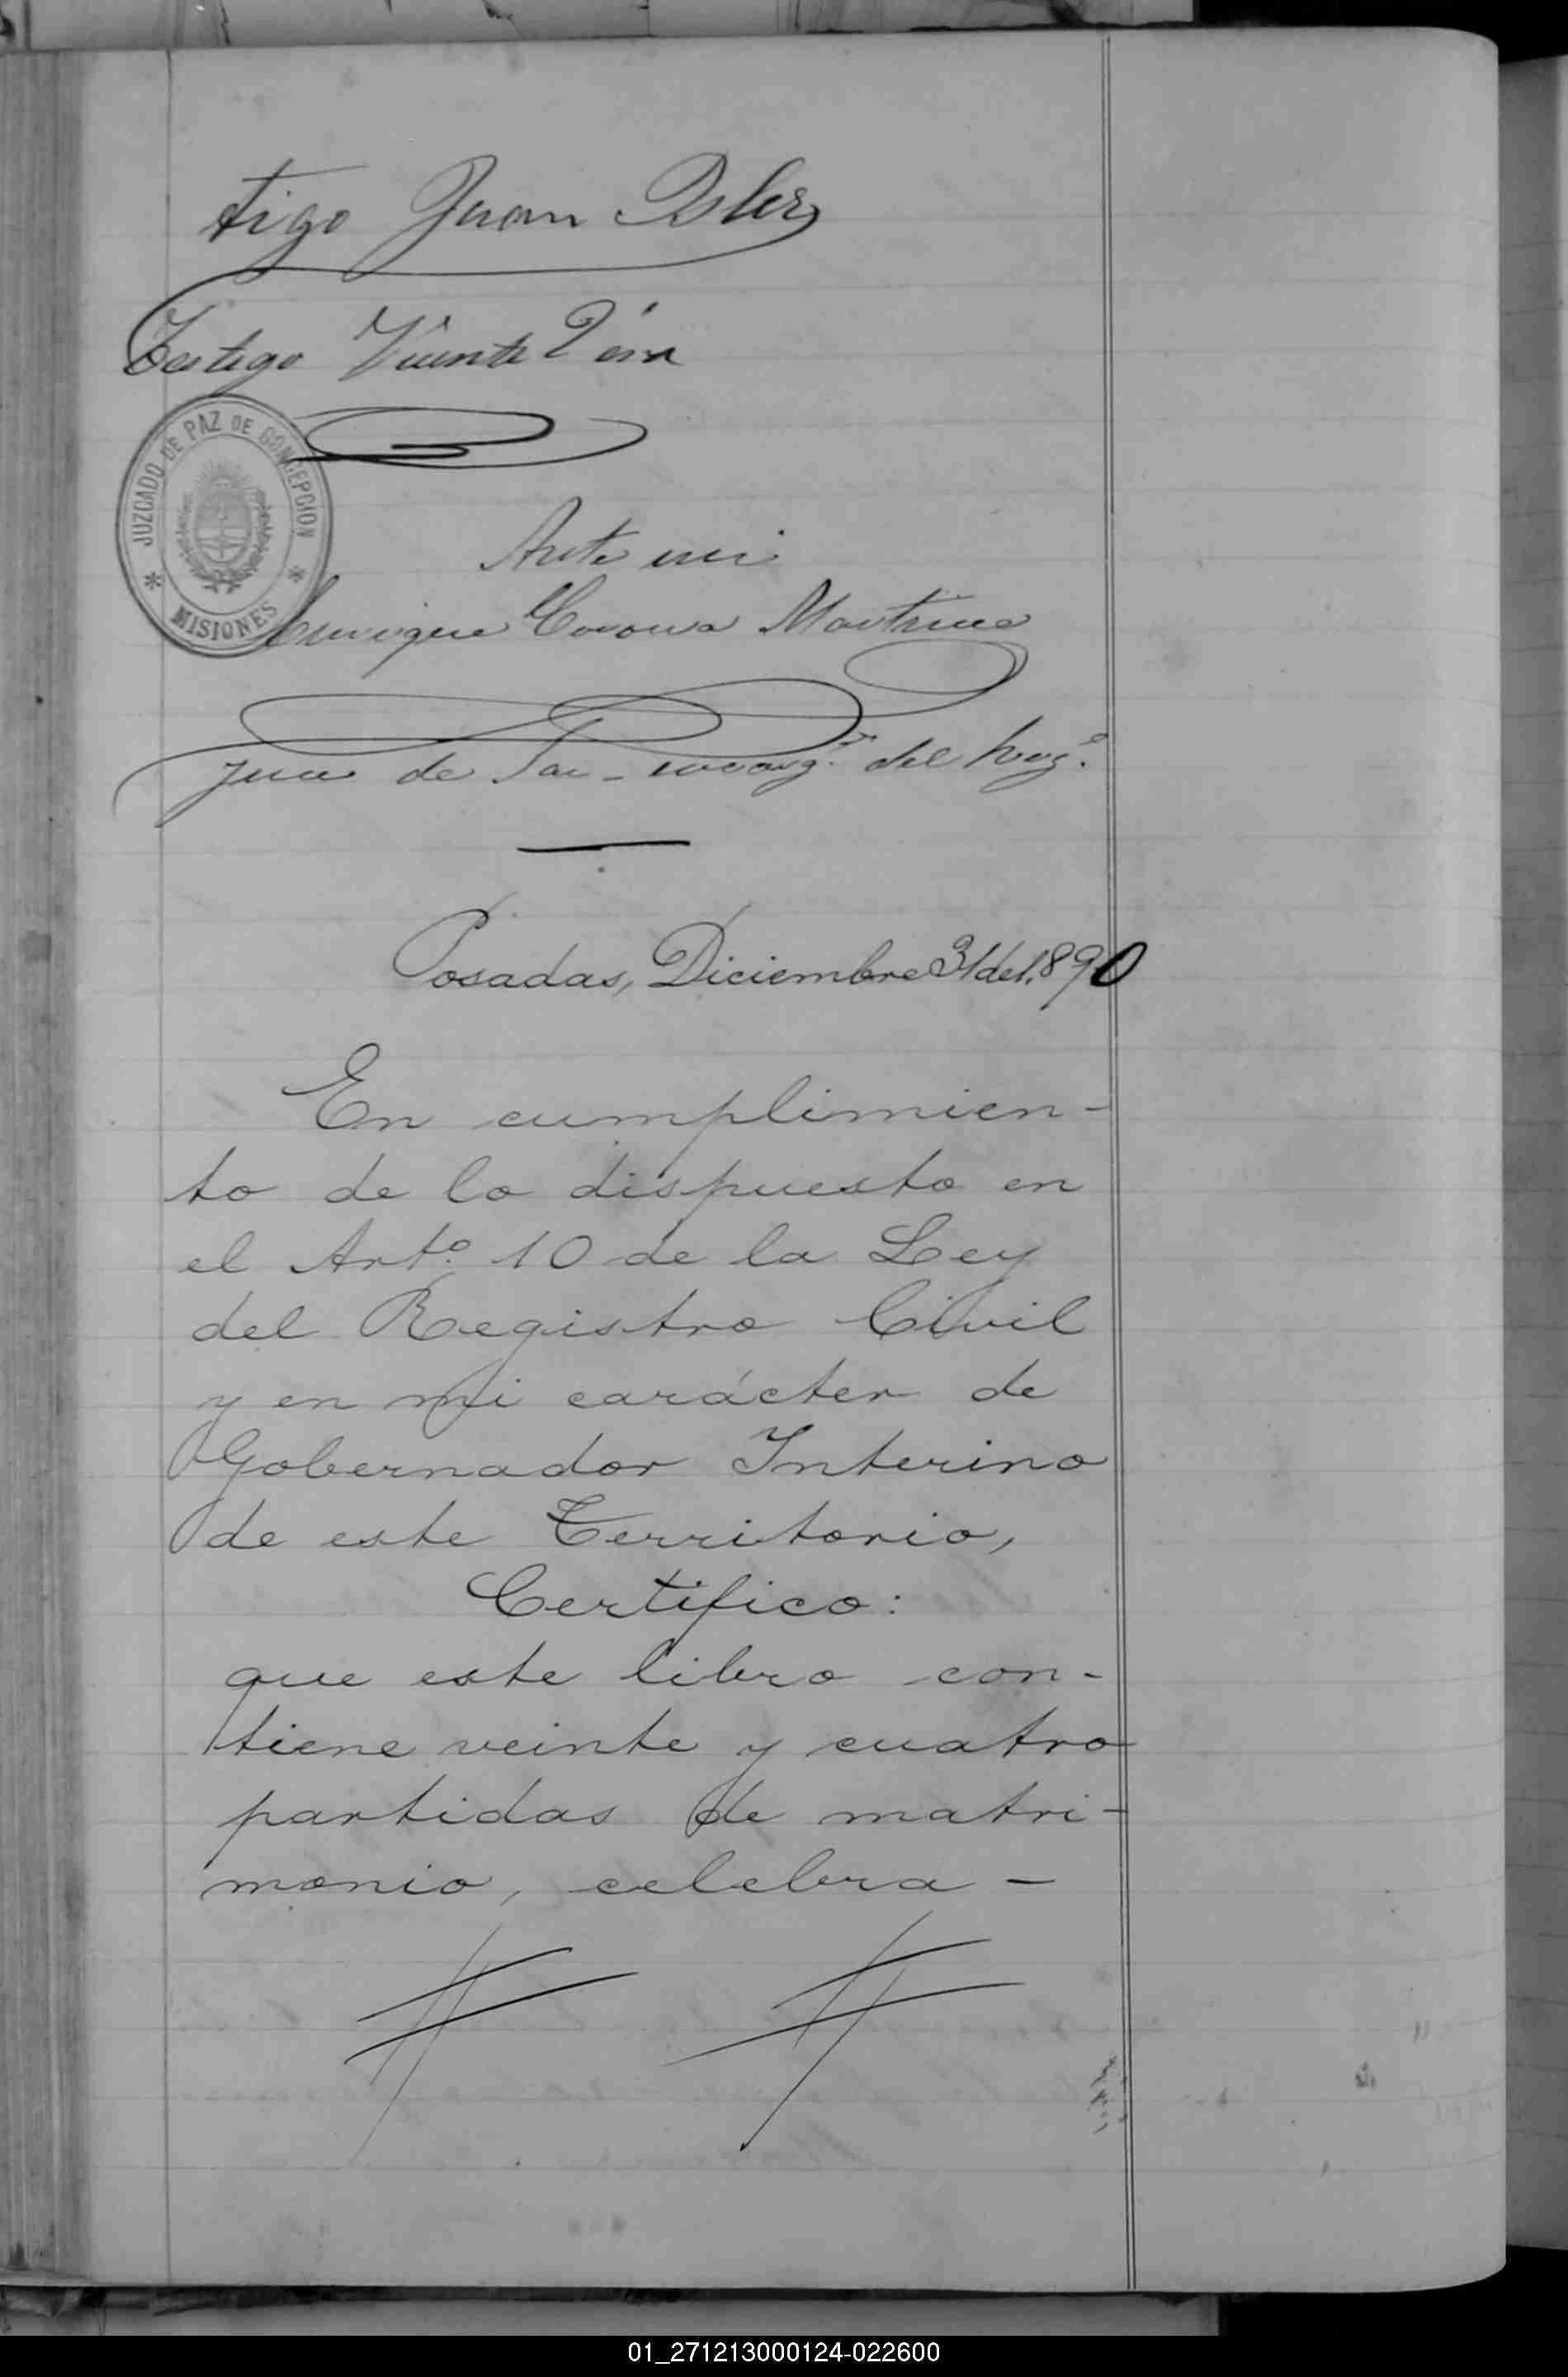 tigo Juan
Testigo Vicente
JUZGADO DE PAZ DE CONCEPCION
MISIONES
Ante mi
Enrique Corona Martinez
Juez de Paz encarg.do del Reg.o
Posadas, Diciembre 31 de 1.890
En cumplimien-
to de lo dispuesto en
el Art.o 10 de la Ley
del Registro Civil
y en mi carácter de
Gobernador Interino
de este Territorio,
Certifico:
que este libro con-
tiene veinte y cuatro
partidas de matri-
monio, celebra-
01_271213000124-022600